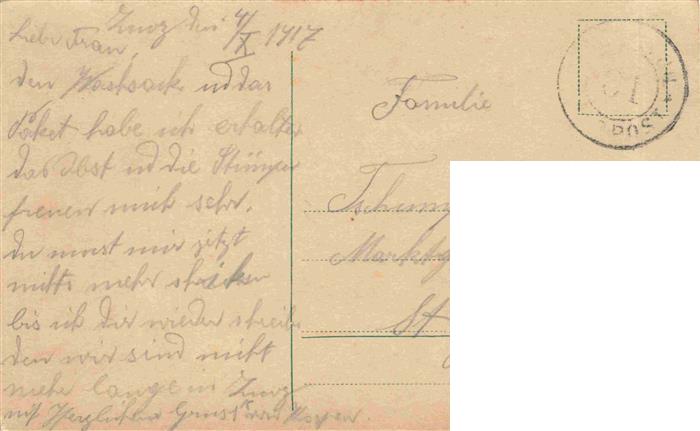 Zuoz den 4/X 1917
Liebe Frau,
den Waschsack ud das
Paket habe ich erhalten
das Obst ud die Stümpen
freuen mich sehr.
du must mir jetzt
nichts mehr schicken
bis ich dir wieder schreibe
den wir sind nicht
mehr lange in Zuoz
mit Herzlichem Gruss
Familie
Tschum
Marktg
St
POST